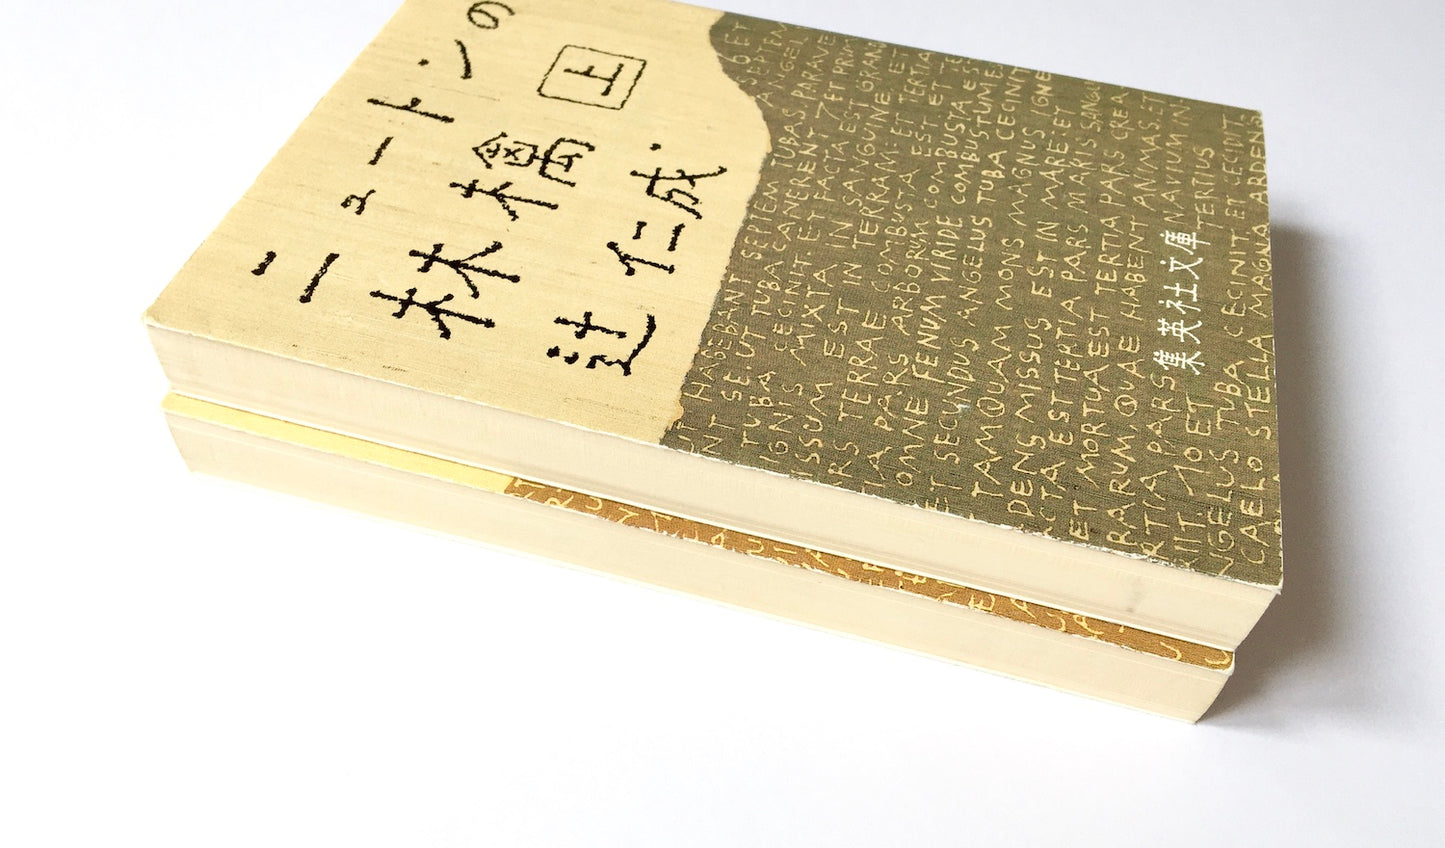 ニュートンの
林檎
上
辻仁成
6 ET
SEPTEM ANGEL
HAGEBANT SEPTEM TUBAS PARAVE
NT SE. UT TUBA CANERENT 7 ET PRIM
TUBA CECINIT. ET FACTA EST GRAND
IGNIS MIXTA IN SANGUINE
ISSUM EST IN TERRAM: ET TERTIA
RS TERRAE COMBUSTA EST ET
TIA PARS ARBORUM COMBUSTA ES
OMNE FENUM VIRIDE COMBUSTUM ES
ET SECUNDUS ANGELUS TUBA CECINIT
TAMQUAM MONS MAGNUS IGNE
DENS MISSUS EST IN MARE ET
ACTA EST TERTIA PARS MARIS SANGU
ET MORTUA EST TERTIA PARS CREA
RARUM, QUAE HABENT ANIMAS. ET
RTIA PARS NAVIUM IN-
RIIT 10 ET TERTIUS
NGELUS TUBA CECINIT ET CECIDIT
CAELO STELLA MAGNA ARDENS
集英社文庫